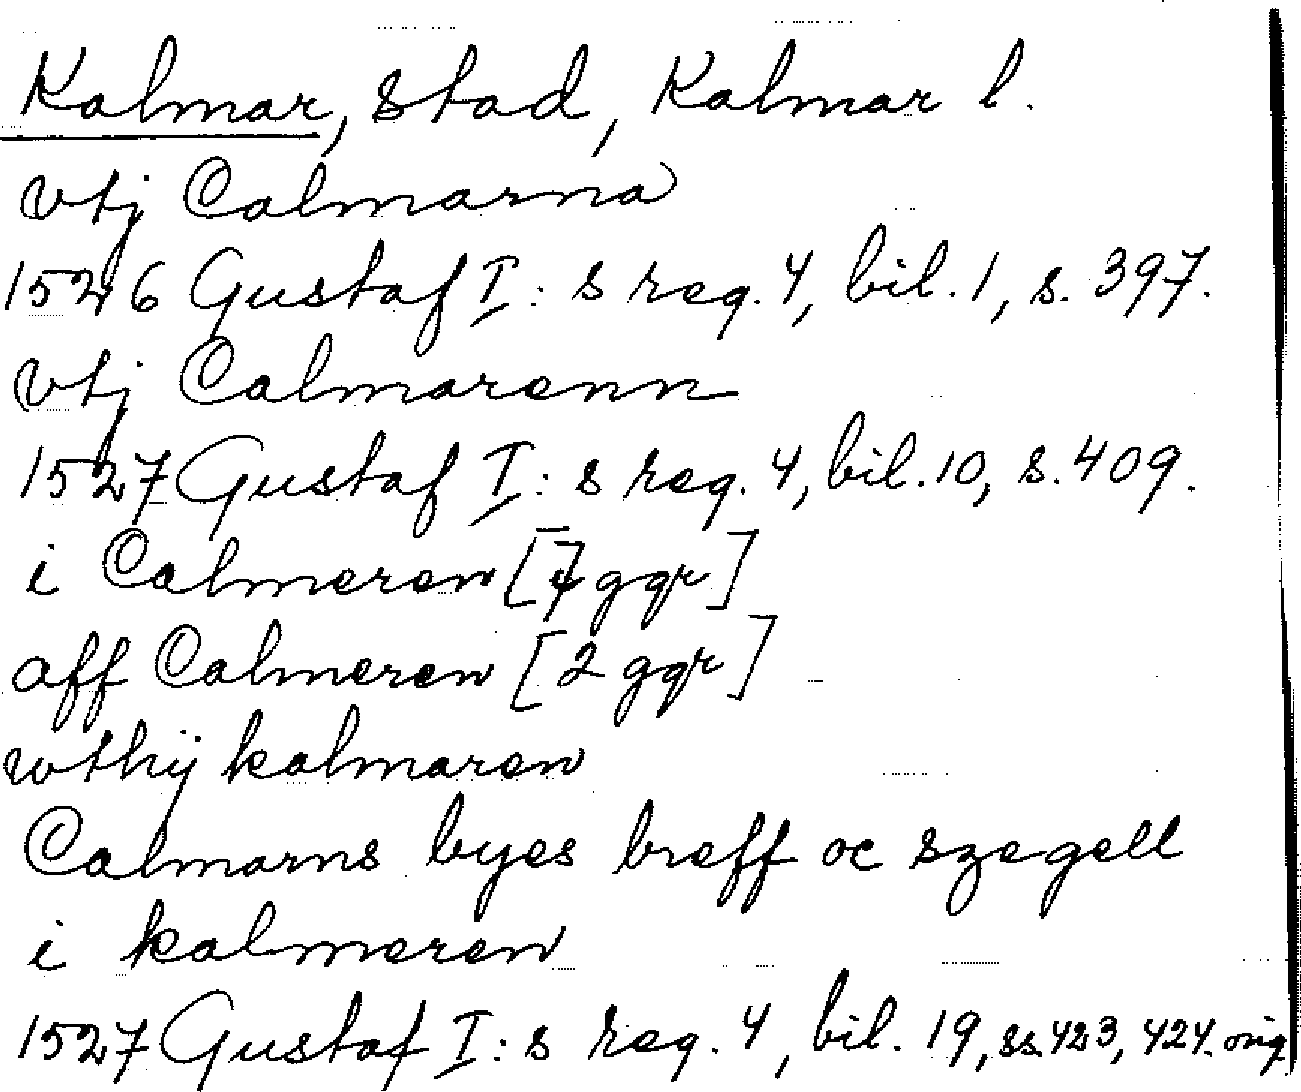 Kalmar, stad, Kalmar l.
vtj Calmarna
1526 Gustaf I:s reg. 4, bil. 1, s. 397.
vtj Calmarenn
1527 Gustaf I:s reg. 4, bil. 10, s. 409.
i Calmeren [7 ggr]
aff Calmeren [2 ggr]
wthij kalmaren
Calmarns byes breff oc szegell
i kalmeren
1527 Gustaf I:s reg. 4, bil. 19, ss. 423, 424. orig